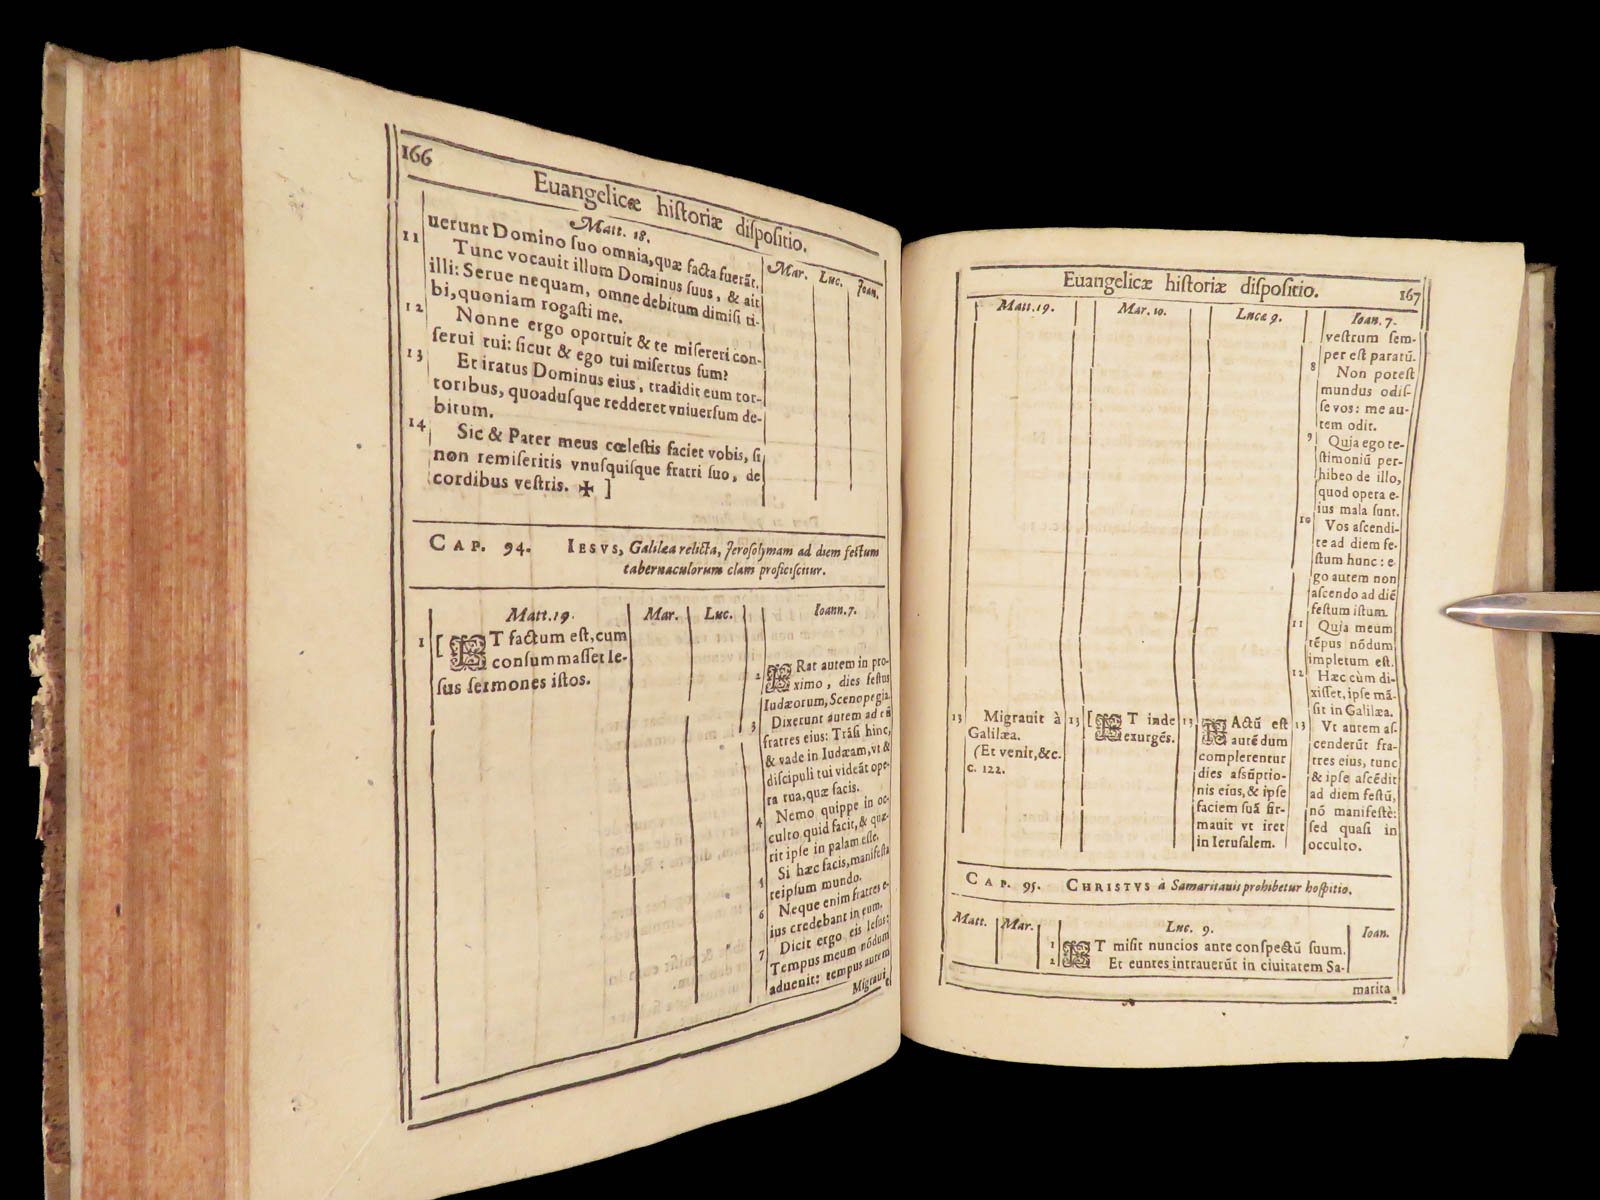 166
Euangelicæ historiæ dispositio.
Matt. 18.
Mar. Luc. Ioan.
uerunt Domino suo omnia, quæ facta fuerãt.
11 Tunc vocauit illum Dominus suus, & ait
illi: Serue nequam, omne debitum dimisi ti-
bi, quoniam rogasti me.
12 Nonne ergo oportuit & te misereri con-
serui tui: sicut & ego tui misertus sum?
13 Et iratus Dominus eius, tradidit eum tor-
toribus, quoadusque redderet vniuersum de-
bitum.
14 Sic & Pater meus cœlestis faciet vobis, si
non remiseritis vnusquisque fratri suo, de
cordibus vestris. ✠ ]
CAP. 94. IESVS, Galilæa relicta, Jerosolymam ad diem festum
tabernaculorum clam proficiscitur.
Matt. 19. Mar. Luc. Ioann. 7.
1 [ ET factum est, cum
consummasset Ie-
sus sermones istos.
2 ERat autem in pro-
ximo, dies festus
Iudæorum, Scenopegia.
3 Dixerunt autem ad eũ
fratres eius: Trãsi hinc,
& vade in Iudæam, vt &
discipuli tui videãt ope-
ra tua, quæ facis.
4 Nemo quippe in oc-
culto quid facit, & quæ-
rit ipse in palam esse.
5 Si hæc facis, manifesta
teipsum mundo.
6 Neque enim fratres e-
ius credebant in eum.
7 Dicit ergo eis Iesus:
Tempus meum nõdum
aduenit: tempus autem
Migraui
Euangelicæ historiæ dispositio.
167
Matt. 19. Mar. 10. Lucæ 9. Ioan. 7.
vestrum sem-
per est paratũ.
8 Non potest
mundus odis-
se vos: me au-
tem odit.
9 Quia ego te-
stimoniũ per-
hibeo de illo,
quod opera e-
ius mala sunt.
10 Vos ascendi-
te ad diem fe-
stum hunc: e-
go autem non
ascendo ad diẽ
festum istum.
11 Quia meum
tẽpus nõdum
impletum est.
12 Hæc cùm di-
xisset, ipse mã-
sit in Galilæa.
13 Migrauit à
Galilæa.
(Et venit, &c.
c. 122.
13 [ ET inde
exurgẽs.
13 FActũ est
autẽ dum
complerentur
dies assũptio-
nis eius, & ipse
faciem suã fir-
mauit vt iret
in Ierusalem.
13 Vt autem as-
cenderũt fra-
tres eius, tunc
& ipse ascẽdit
ad diem festũ,
nõ manifestè:
sed quasi in
occulto.
CAP. 95. CHRISTVS à Samaritanis prohibetur hospitio.
Matt. Mar. Luc. 9. Ioan.
1 ET misit nuncios ante conspectũ suum.
2 Et euntes intrauerũt in ciuitatem Sa-
marita